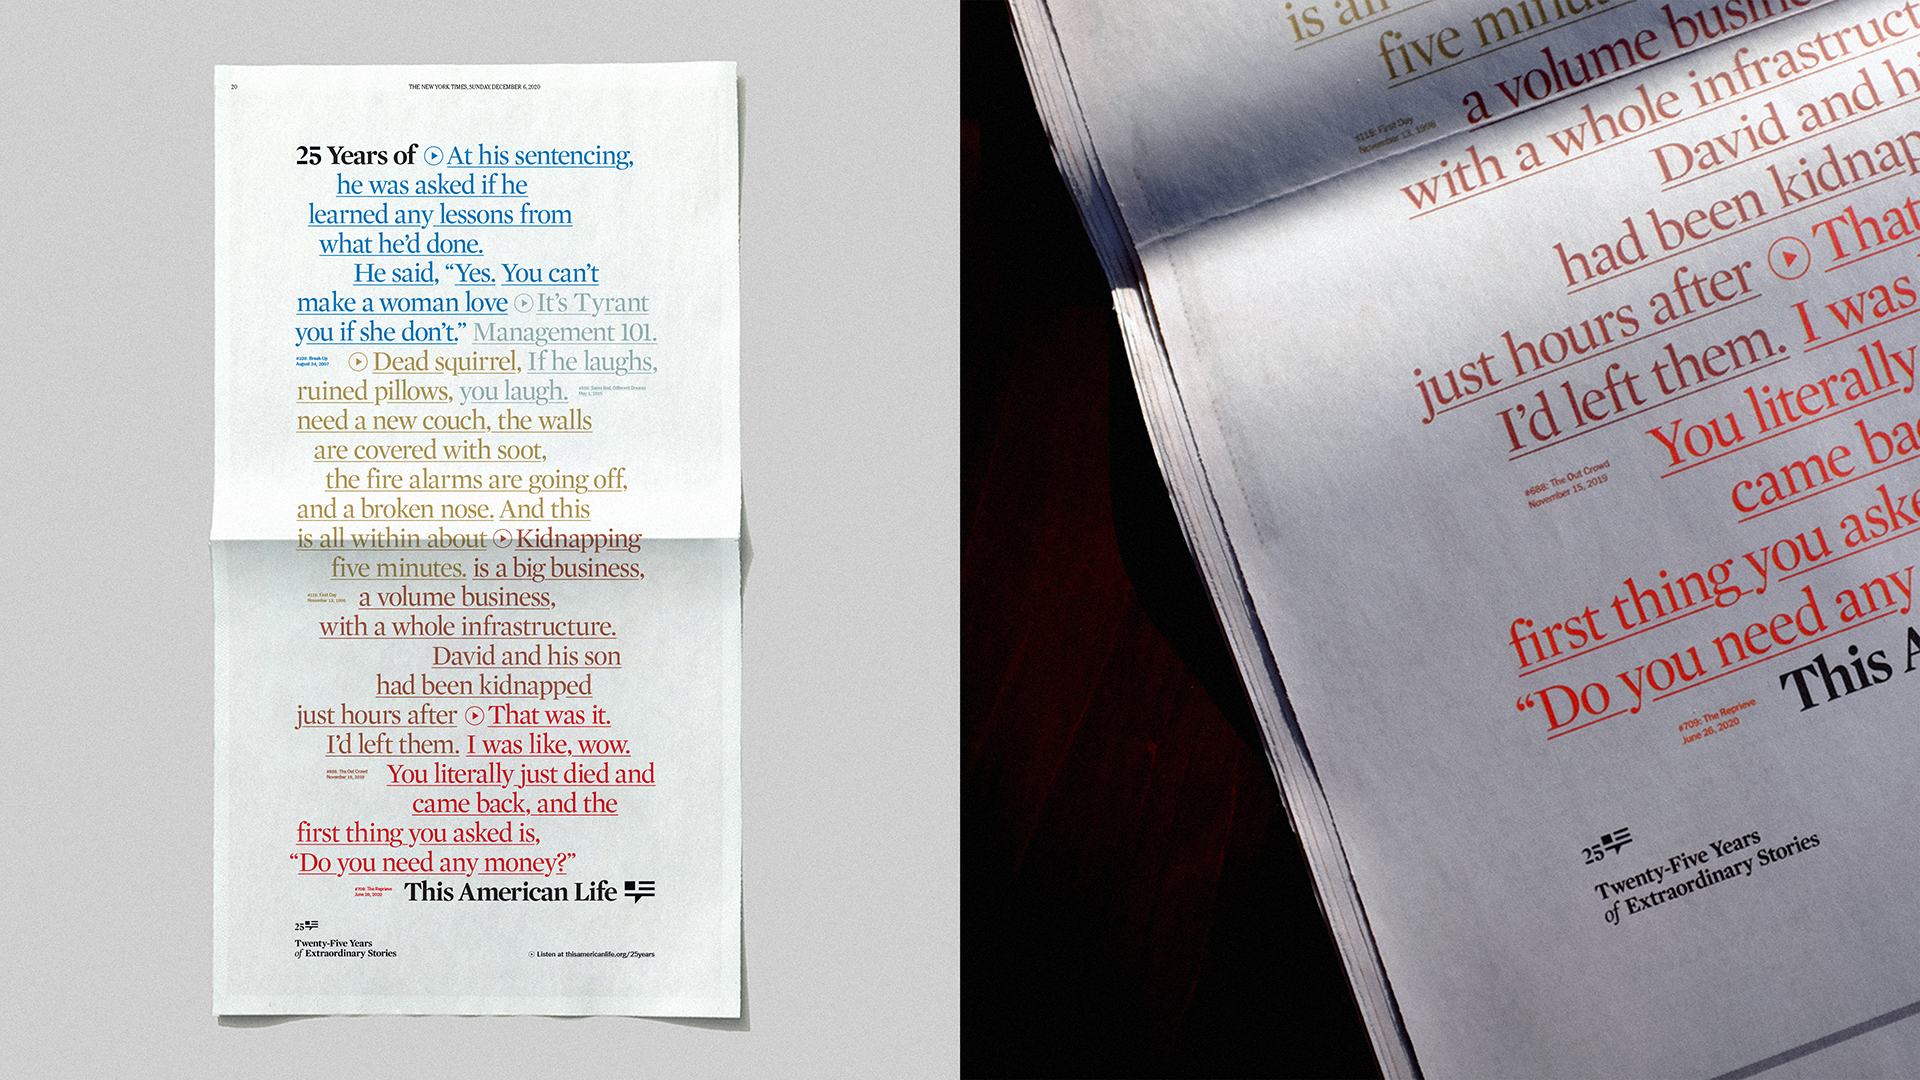 20
THE NEW YORK TIMES, SUNDAY, DECEMBER 6, 2020
25 Years of At his sentencing,
he was asked if he
learned any lessons from
what he’d done.
He said, “Yes. You can’t
make a woman love It’s Tyrant
you if she don’t.” Management 101.
#109: Break-Up
August 24, 2007
Dead squirrel, If he laughs,
ruined pillows, you laugh.
May 1, 2015
need a new couch, the walls
are covered with soot,
the fire alarms are going off,
and a broken nose. And this
is all within about Kidnapping
five minutes. is a big business,
#115: First Day
November 13, 1998
a volume business,
with a whole infrastructure.
David and his son
had been kidnapped
just hours after That was it.
I’d left them. I was like, wow.
#688: The Out Crowd
November 15, 2019
You literally just died and
came back, and the
first thing you asked is,
“Do you need any money?”
#709: The Reprieve
June 26, 2020
This American Life
25
Twenty-Five Years
of Extraordinary Stories
Listen at thisamericanlife.org/25years
is all
five minutes
a volume business
#115: First Day
November 13, 1998
with a whole infrastruct
David and hi
had been kidnap
just hours after That
I’d left them. I was
#688: The Out Crowd
November 15, 2019
You literally
came ba
first thing you aske
“Do you need any
#709: The Reprieve
June 26, 2020
This A
25
Twenty-Five Years
of Extraordinary Stories